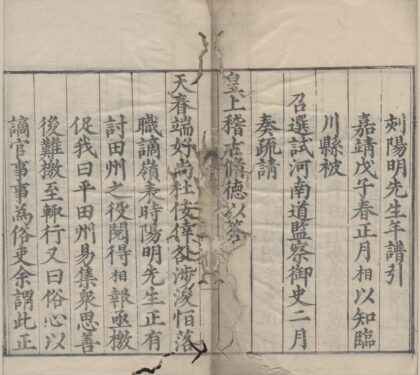 刻陽明先生年譜引
嘉靖戊午春正月相以知臨
川縣被
召選試河南道監察御史二月
奏疏請
皇上稽志脩德以荅
天眷端好尚杜佞倖却涉浚恒落
職謫嶺表時陽明先生正有
討田州之役聞得相報亟檄
促我曰平田州易集衆思善
後難檄至輒行又曰俗心以
謫官事事為俗吏余謂此正